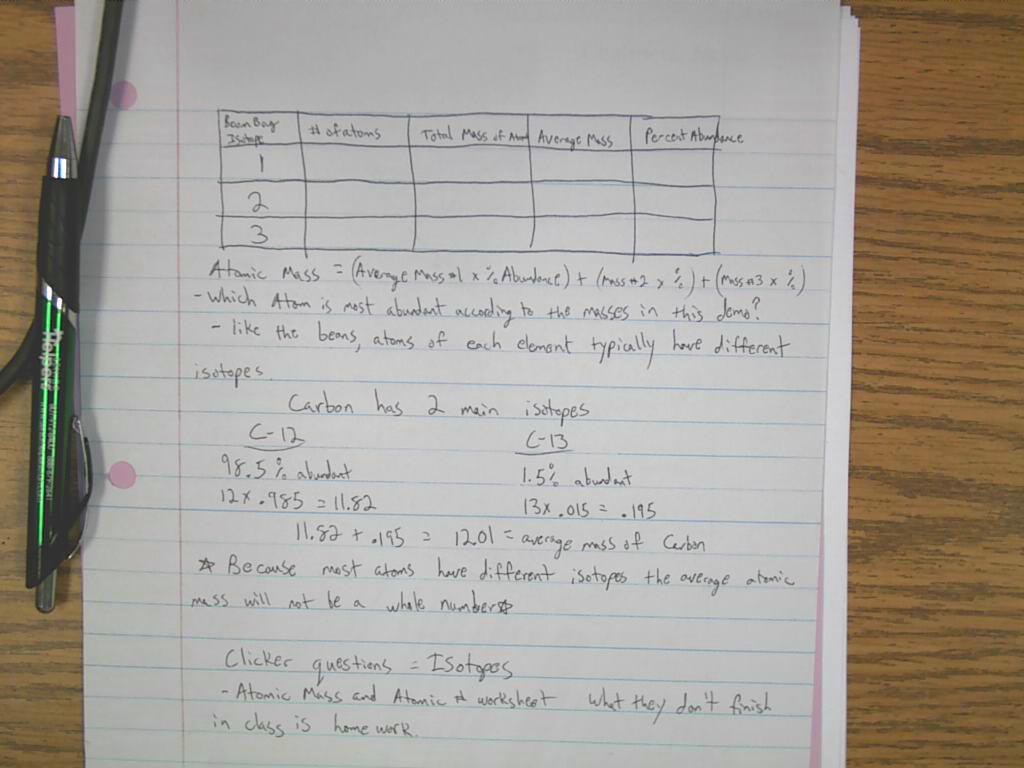 Bean Bag Isotope # of atoms Total Mass of Atom Average Mass Percent Abundance
1
2
3
Atomic Mass = (Average Mass #1 x % Abundance) + (mass #2 x %) + (mass #3 x %)
- which Atom is most abundant according to the masses in this demo?
- like the beans, atoms of each element typically have different
isotopes.
Carbon has 2 main isotopes
C-12 C-13
98.5% abundant 1.5% abundant
12 x .985 = 11.82 13 x .015 = .195
11.82 + .195 = 12.01 = average mass of Carbon
☆ Because most atoms have different isotopes the average atomic
mass will not be a whole number ☆
Clicker questions = Isotopes
- Atomic Mass and Atomic # worksheet what they don't finish
in class is home work.